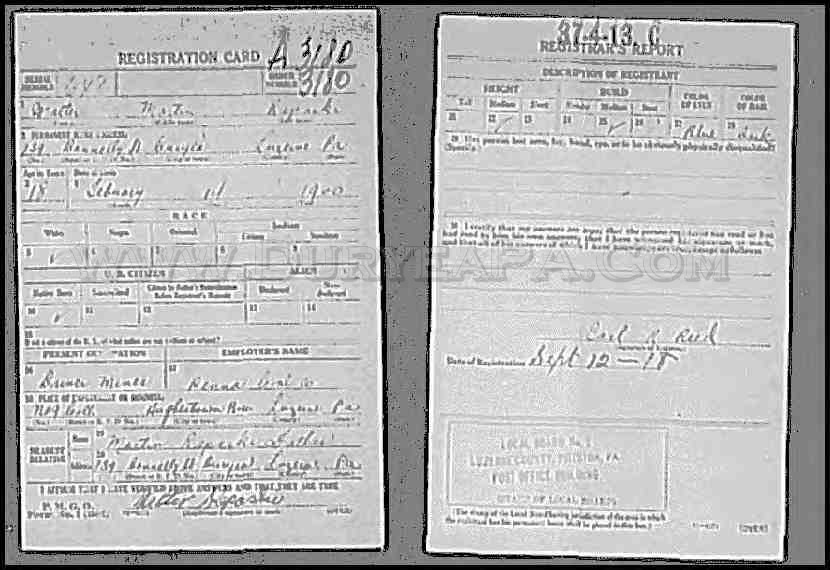 REGISTRATION CARD A 3180
SERIAL NUMBER
ORDER NUMBER 3180
1 Walter Martin
2 PERMANENT HOME ADDRESS:
739 Donnelly St Duryea Luzerne Pa
Age in Years
Date of Birth
3 18
4 February 1st 1900
RACE
White
Negro
Oriental
Indian
Citizen
Noncitizen
5 6 7 8 9
U. S. CITIZEN
ALIEN
Native Born
Naturalized
Citizen by Father's Naturalization Before Registrant's Majority
Declarant
Non-declarant
10 11 12 13 14
15
If not a citizen of the U. S., of what nation are you a citizen or subject?
PRESENT OCCUPATION
EMPLOYER'S NAME
16 Miner
17 Coal Co
18 PLACE OF EMPLOYMENT OR BUSINESS:
Hughestown Boro Luzerne Pa
NEAREST RELATIVE
Name 19 Martin Father
Address 20 739 Donnelly St Duryea Luzerne Pa
I AFFIRM THAT I HAVE VERIFIED ABOVE ANSWERS AND THAT THEY ARE TRUE
P. M. G. O.
Form No. 1 (Red)
Walter
(Registrant's signature or mark)
(OVER)
37-4-13 C
REGISTRAR'S REPORT
DESCRIPTION OF REGISTRANT
HEIGHT
BUILD
COLOR OF EYES
COLOR OF HAIR
Tall
Medium
Short
Slender
Medium
Stout
21 22 23 24 25 26
27 Blue
28 Dark
29 Has person lost arm, leg, hand, eye, or is he obviously physically disqualified?
(Specify.)
30 I certify that my answers are true; that the person registered has read or has had read to him his own answers; that I have witnessed his signature or mark, and that all of his answers of which I have knowledge are true, except as follows:
Date of Registration Sept 12-18
LOCAL BOARD No. 
LUZERNE COUNTY, PITTSTON, PA.
POST OFFICE BUILDING
STAMP OF LOCAL BOARD
(The stamp of the Local Board having jurisdiction of the area in which the registrant has his permanent home shall be placed in this box.)
(OVER)
WWW.DURYEAPA.COM